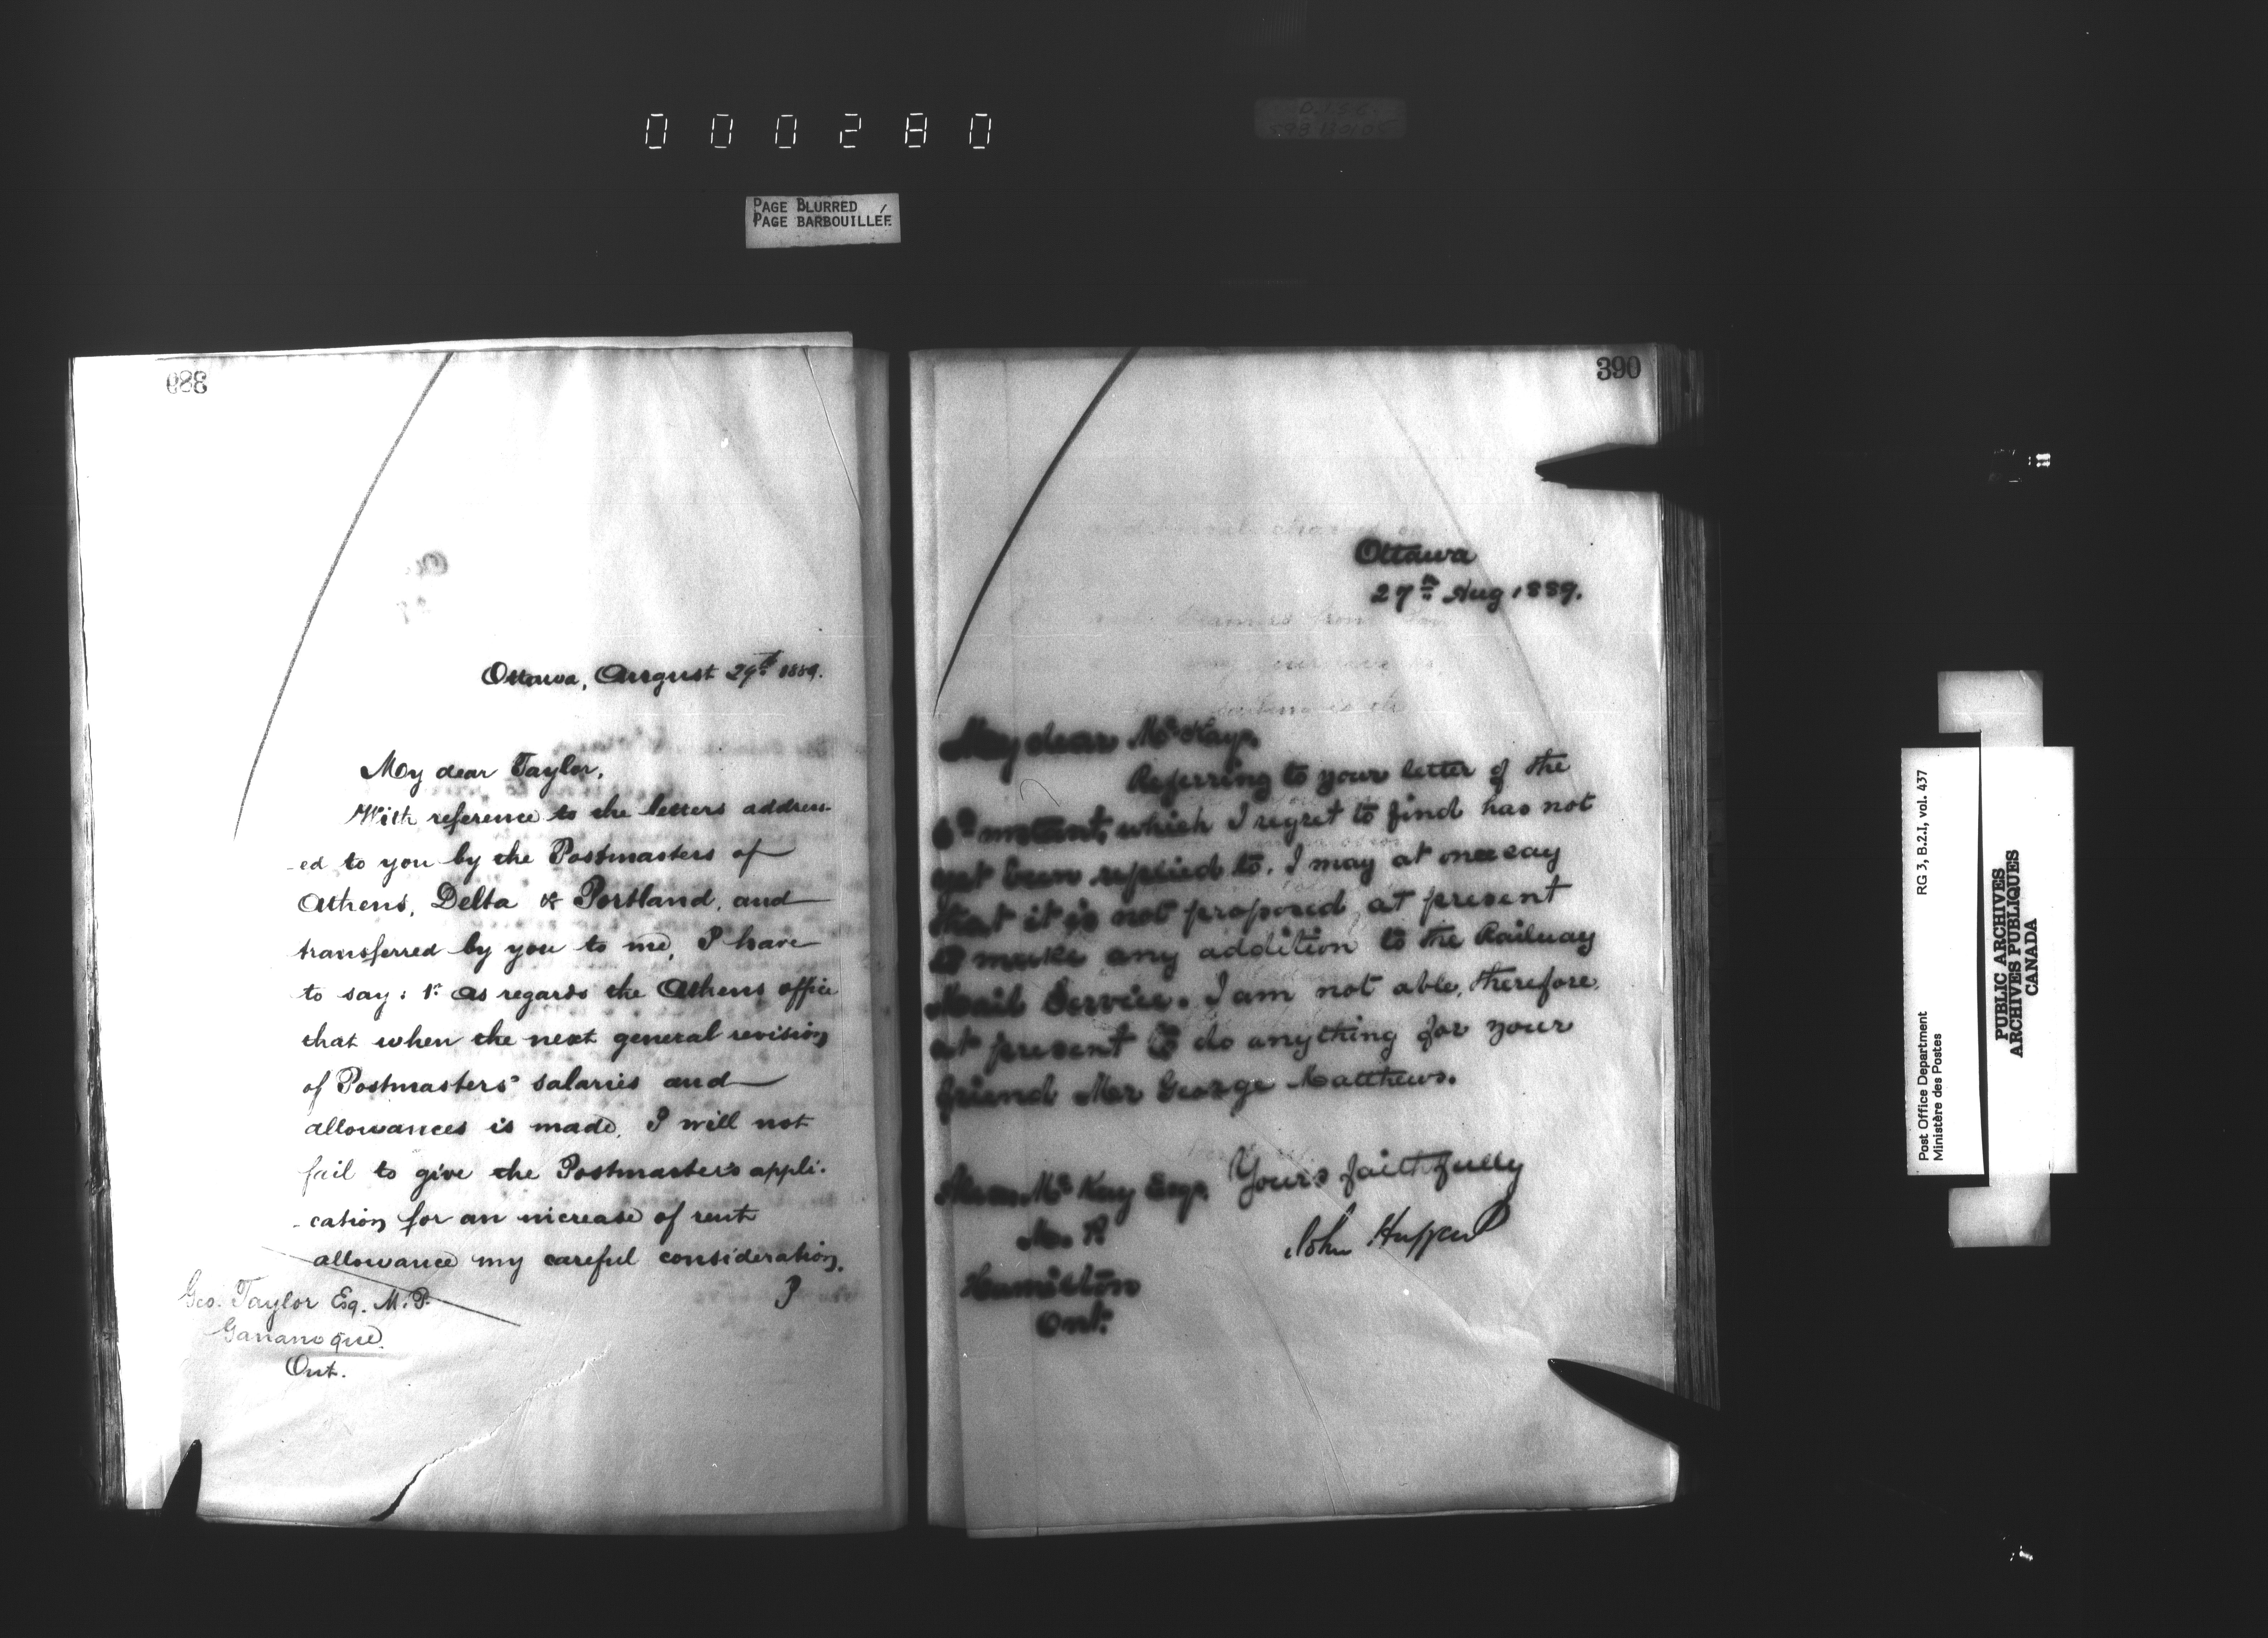 000280
PAGE BLURRED
PAGE BARBOUILLÉE
389
Ottawa, August 29th 1889.
My dear Taylor,
With reference to the letters address-
-ed to you by the Postmasters of
Athens, Delta & Portland, and
transferred by you to me, I have
to say: 1st as regards the Athens office
that when the next general revision
of Postmasters' salaries and
allowances is made, I will not
fail to give the Postmaster's appli-
-cation for an increase of rent
allowance my careful consideration.
Geo. Taylor Esq. M.P.
Gananoque.
Ont.
390
Ottawa
27th Aug 1889.
My dear McKay,
Referring to your letter of the
6th instant, which I regret to find has not
yet been replied to. I may at once say
that it is not proposed, at present
to make any addition to the Railway
Mail Service. I am not able, therefore,
at present to do anything for your
friend Mr George Matthews.
Yours faithfully
John Haggard
McKay Esq.
M. P.
Hamilton
Ont.
Post Office Department
Ministère des Postes
RG 3, B.2.I, vol. 437
PUBLIC ARCHIVES
ARCHIVES PUBLIQUES
CANADA